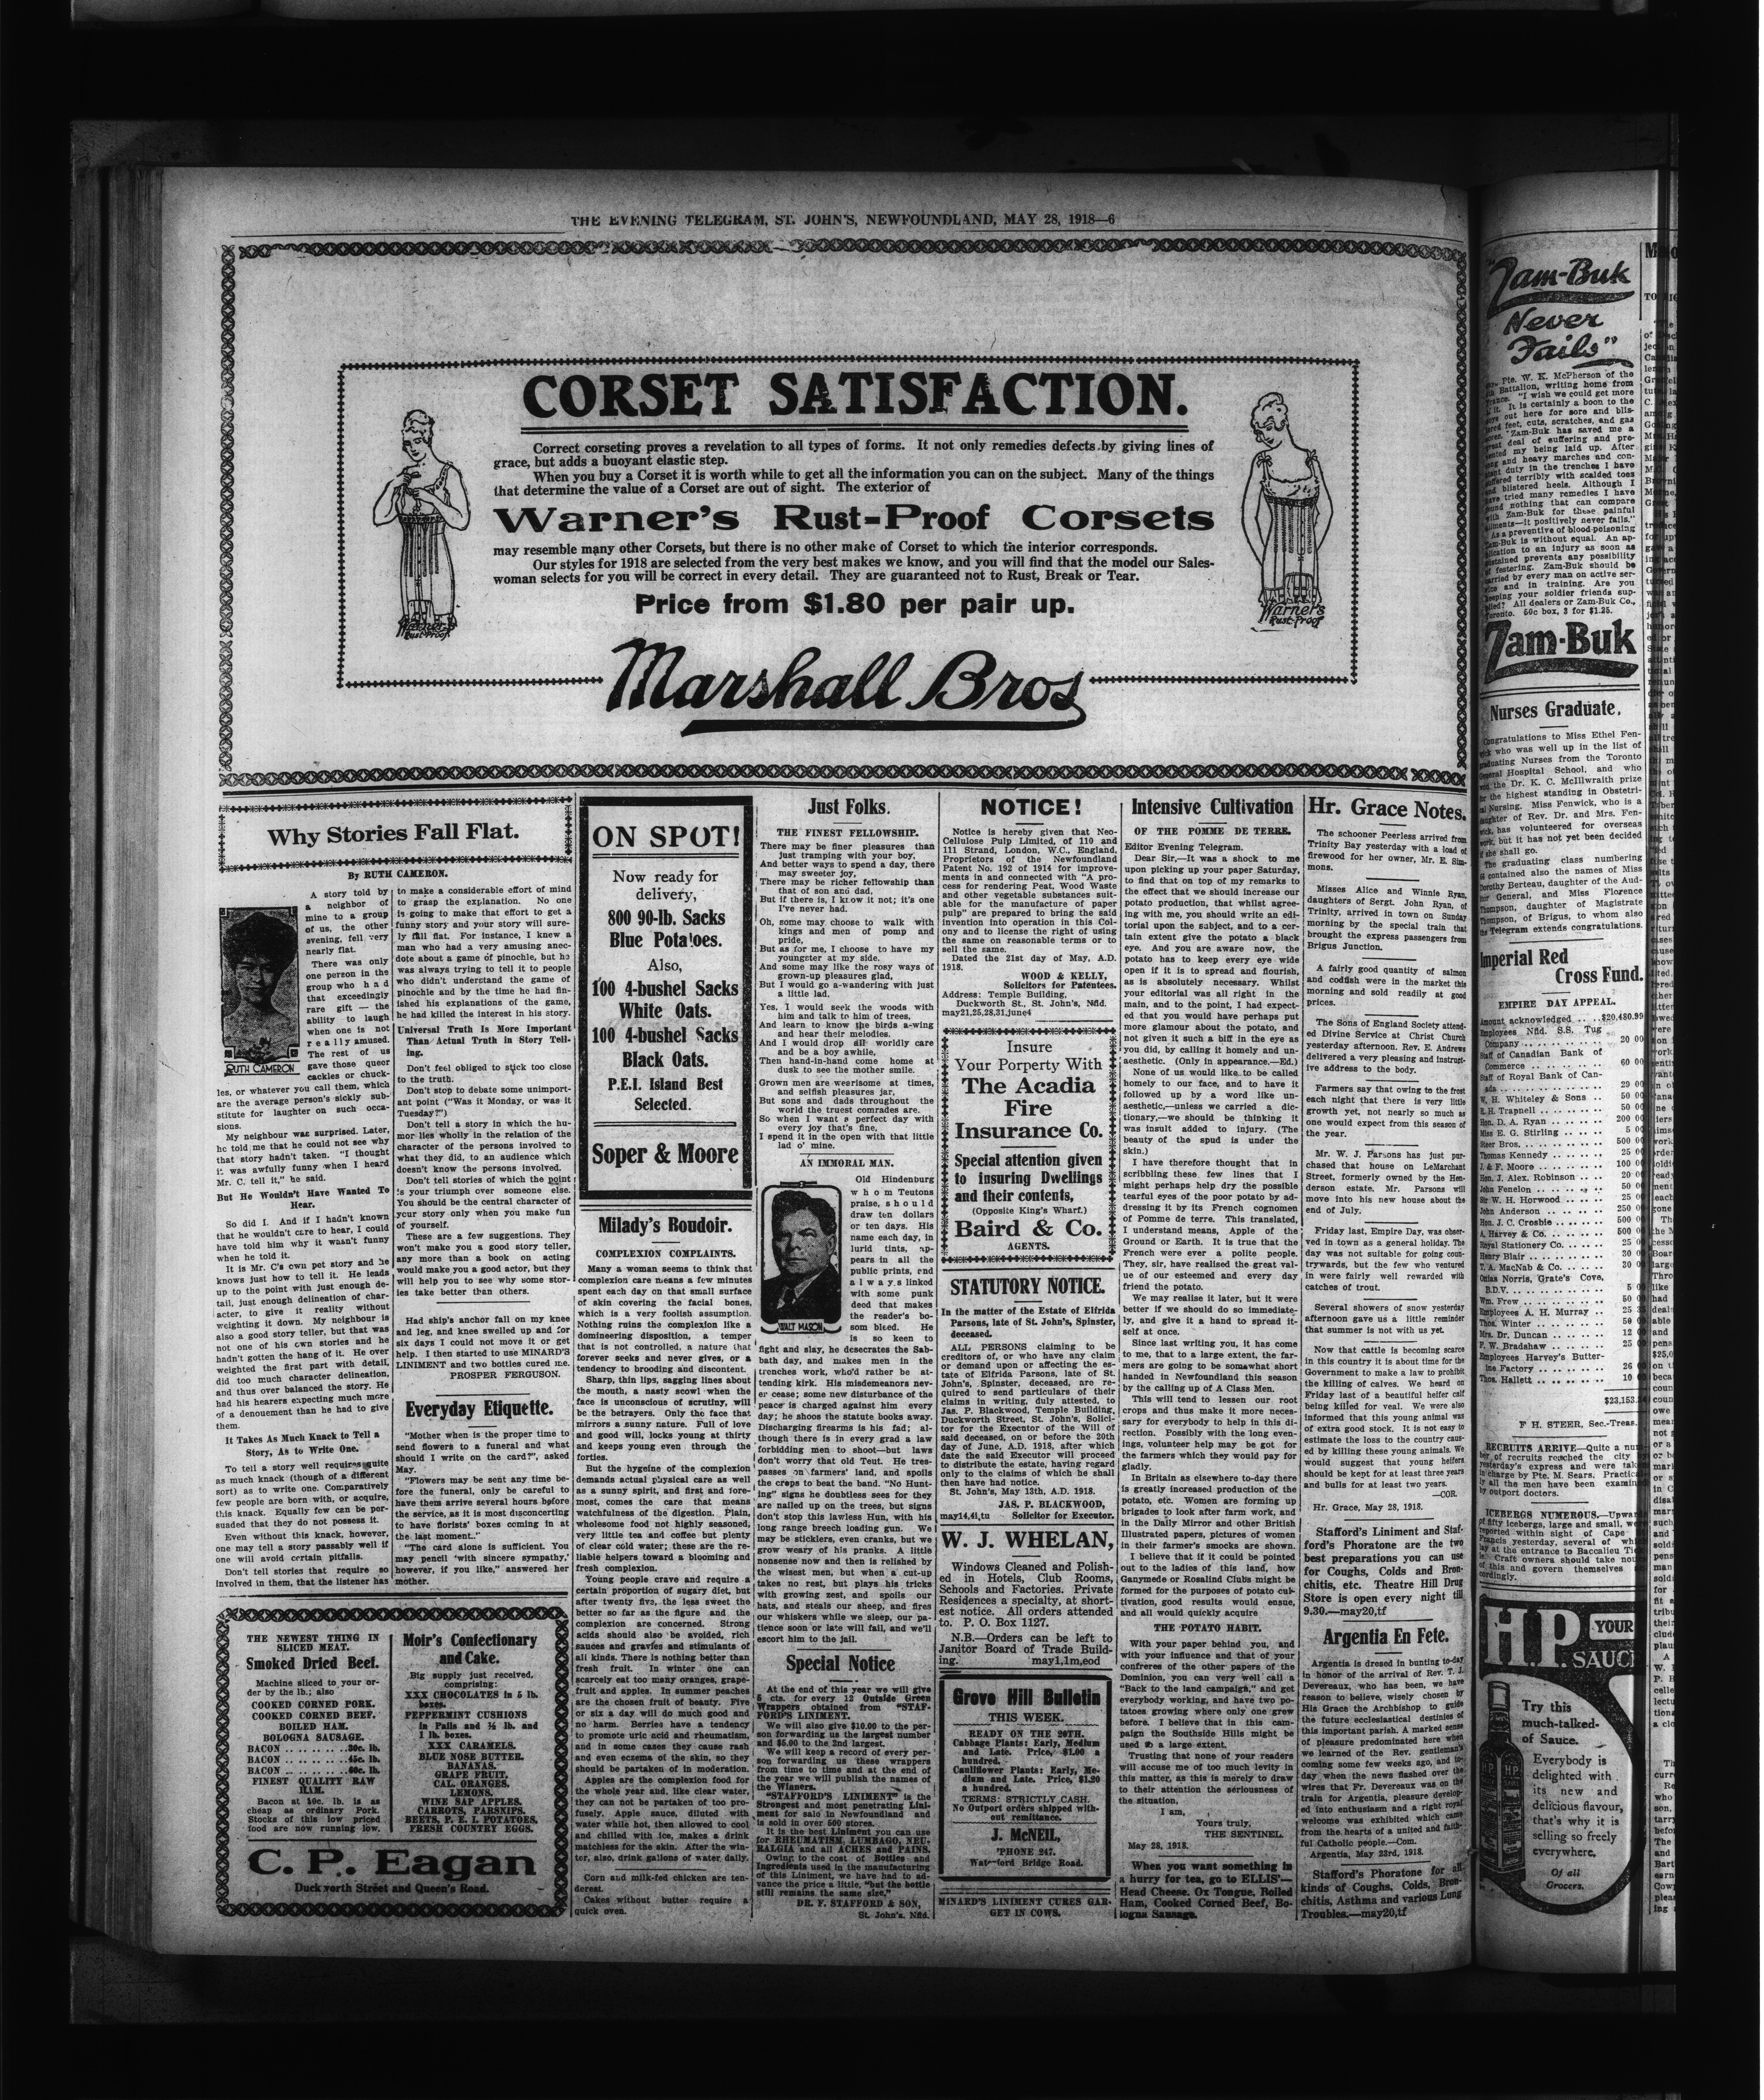 THE EVENING TELEGRAM, ST. JOHN'S, NEWFOUNDLAND, MAY 28, 1918—6
CORSET SATISFACTION.
Correct corseting proves a revelation to all types of forms. It not only remedies defects by giving lines of
grace, but adds a buoyant elastic step.
When you buy a Corset it is worth while to get all the information you can on the subject. Many of the things
that determine the value of a Corset are out of sight. The exterior of
Warner's Rust-Proof Corsets
may resemble many other Corsets, but there is no other make of Corset to which the interior corresponds.
Our styles for 1918 are selected from the very best makes we know, and you will find that the model our Sales-
woman selects for you will be correct in every detail. They are guaranteed not to Rust, Break or Tear.
Price from $1.80 per pair up.
Warner's
Rust-Proof
Warner's
Rust-Proof
Marshall Bros
Why Stories Fall Flat.
By RUTH CAMERON.
RUTH CAMERON
A story told by
a neighbor of
mine to a group
of us, the other
evening, fell very
nearly flat.
There was only
one person in the
group who had
that exceedingly
rare gift — the
ability to laugh
when one is not
really amused.
The rest of us
gave those queer
cackles or chuck-
les, or whatever you call them, which
are the average person's sickly sub-
stitute for laughter on such occa-
sions.
My neighbour was surprised. Later,
he told me that he could not see why
that story hadn't taken. "I thought
it was awfully funny when I heard
Mr. C. tell it," he said.
But He Wouldn't Have Wanted To
Hear.
So did I. And if I hadn't known
that he wouldn't care to hear, I could
have told him why it wasn't funny
when he told it.
It is Mr. C's own pet story and he
knows just how to tell it. He leads
up to the point with just enough de-
tail, just enough delineation of char-
acter, to give it reality without
weighting it down. My neighbour is
also a good story teller, but that was
not one of his own stories and he
hadn't gotten the hang of it. He over
weighted the first part with detail,
did too much character delineation,
and thus over balanced the story. He
had his hearers expecting much more
of a denouement than he had to give
them.
It Takes As Much Knack to Tell a
Story, As to Write One.
To tell a story well requires quite
as much knack (though of a different
sort) as to write one. Comparatively
few people are born with, or acquire,
this knack. Equally few can be per-
suaded that they do not possess it.
Even without this knack, however,
one may tell a story passably well if
one will avoid certain pitfalls.
Don't tell stories that require so
involved in them, that the listener has
to make a considerable effort of mind
to grasp the explanation. No one
is going to make that effort to get a
funny story and your story will sure-
ly fall flat. For instance, I knew a
man who had a very amusing anec-
dote about a game of pinochle, but he
was always trying to tell it to people
who didn't understand the game of
pinochle and by the time he had fin-
ished his explanations of the game,
he had killed the interest in his story.
Universal Truth Is More Important
Than Actual Truth in Story Tell-
ing.
Don't feel obliged to stick too close
to the truth.
Don't stop to debate some unimport-
ant point ("Was it Monday, or was it
Tuesday?")
Don't tell a story in which the hu-
mor lies wholly in the relation of the
character of the persons involved to
what they did, to an audience which
doesn't know the persons involved.
Don't tell stories of which the point
is your triumph over someone else.
You should be the central character of
your story only when you make fun
of yourself.
These are a few suggestions. They
won't make you a good story teller,
any more than a book on acting
would make you a good actor, but they
will help you to see why some stor-
ies take better than others.
Had ship's anchor fall on my knee
and leg, and knee swelled up and for
six days I could not move it or get
help. I then started to use MINARD'S
LINIMENT and two bottles cured me.
PROSPER FERGUSON.
Everyday Etiquette.
"Mother when is the proper time to
send flowers to a funeral and what
should I write on the card?", asked
May.
"Flowers may be sent any time be-
fore the funeral, only be careful to
have them arrive several hours before
the service, as it is most disconcerting
to have florists' boxes coming in at
the last moment.."
"The card alone is sufficient. You
may pencil 'with sincere sympathy,'
however, if you like," answered her
mother.
THE NEWEST THING IN
SLICED MEAT.
Smoked Dried Beef.
Machine sliced to your or-
der by the lb.; also
COOKED CORNED PORK.
COOKED CORNED BEEF.
BOILED HAM.
BOLOGNA SAUSAGE.
BACON . . . . . . . . 30c. lb.
BACON . . . . . . . . 45c. lb.
BACON . . . . . . . . 60c. lb.
FINEST QUALITY RAW
HAM.
Bacon at 30c. lb. is as
cheap as ordinary Pork.
Stocks of this low priced
food are now running low.
Moir's Confectionary
and Cake.
Big supply just received,
comprising:
XXX CHOCOLATES in 5 lb.
boxes.
PEPPERMINT CUSHIONS
in Pails and ½ lb. and
1 lb. boxes.
XXX CARAMELS.
BLUE NOSE BUTTER.
BANANAS.
GRAPE FRUIT.
CAL. ORANGES.
LEMONS.
WINE SAP APPLES.
CARROTS, PARSNIPS.
BEETS, P. E. I. POTATOES.
FRESH COUNTRY EGGS.
C. P. Eagan
Duckworth Street and Queen's Road.
ON SPOT!
Now ready for
delivery,
800 90-lb. Sacks
Blue Potatoes.
Also,
100 4-bushel Sacks
White Oats.
100 4-bushel Sacks
Black Oats.
P.E.I. Island Best
Selected.
Soper & Moore
Milady's Boudoir.
COMPLEXION COMPLAINTS.
Many a woman seems to think that
complexion care means a few minutes
spent each day on that small surface
of skin covering the facial bones,
which is a very foolish assumption.
Nothing ruins the complexion like a
domineering disposition, a temper
that is not controlled, a nature that
forever seeks and never gives, or a
tendency to brooding and discontent.
Sharp, thin lips, sagging lines about
the mouth, a nasty scowl when the
face is unconscious of scrutiny, will
be the betrayers. Only the face that
mirrors a sunny nature. Full of love
and good will, locks young at thirty
and keeps young even through the
forties.
But the hygeine of the complexion
demands actual physical care as well
as a sunny spirit, and first and fore-
most, comes the care that means
watchfulness of the digestion. Plain,
wholesome food not highly seasoned,
very little tea and coffee but plenty
of clear cold water; these are the re-
liable helpers toward a blooming and
fresh complexion.
Young people crave and require a
certain proportion of sugary diet, but
after twenty five, the less sweet the
better so far as the figure and the
complexion are concerned. Strong
acids should also be avoided, rich
sauces and gravies and stimulants of
all kinds. There is nothing better than
fresh fruit. In winter one can
scarcely eat too many oranges, grape-
fruit and apples. In summer peaches
are the chosen fruit of beauty. Five
or six a day will do much good and
no harm. Berries have a tendency
to promote uric acid and rheumatism,
and in some cases they cause rash
and even eczema of the skin, so they
should be partaken of in moderation.
Apples are the complexion food for
the whole year and, like clear water,
they can not be partaken of too pro-
fusely. Apple sauce, diluted with
water while hot, then allowed to cool
and chilled with ice, makes a drink
matchless for the skin. After the win-
ter, also, drink gallons of water daily.
Corn and milk-fed chicken are ten-
derest.
Cakes without butter require a
quick oven.
Just Folks.
THE FINEST FELLOWSHIP.
There may be finer pleasures than
just tramping with your boy,
And better ways to spend a day, there
may sweeter joy,
There may be richer fellowship than
that of son and dad,
But if there is, I know it not; it's one
I've never had.
Oh, some may choose to walk with
kings and men of pomp and
pride,
But as for me, I choose to have my
youngster at my side.
And some may like the rosy ways of
grown-up pleasures glad,
But I would go a-wandering with just
a little lad.
Yes, I would seek the woods with
him and talk to him of trees,
And learn to know the birds a-wing
and hear their melodies.
And I would drop all worldly care
and be a boy awhile,
Then hand-in-hand come home at
dusk to see the mother smile.
Grown men are wearisome at times,
and selfish pleasures jar,
But sons and dads throughout the
world the truest comrades are.
So when I want a perfect day with
every joy that's fine,
I spend it in the open with that little
lad o' mine.
AN IMMORAL MAN.
WALT MASON
Old Hindenburg
whom Teutons
praise, should
draw ten dollars
or ten days. His
name each day, in
lurid tints, ap-
pears in all the
public prints, and
always linked
with some punk
deed that makes
the reader's bo-
som bleed. He
is so keen to
fight and slay, he desecrates the Sab-
bath day, and makes men in the
trenches work, who'd rather be at-
tending kirk. His misdemeanors nev-
er cease; some new disturbance of the
peace is charged against him every
day; he shoos the statute books away.
Discharging firearms is his fad; al-
though there is in every grad a law
forbidding men to shoot—but laws
don't worry that old Teut. He tres-
passes on farmers' land, and spoils
the crops to beat the band. "No Hunt-
ing" signs he doubtless sees for they
are nailed up on the trees, but signs
don't stop this lawless Hun, with his
long range breech loading gun. We
may be sticklers, even cranks, but we
grow weary of his pranks. A little
nonsense now and then is relished by
the wisest men, but when a cut-up
takes no rest, but plays his tricks
with growing zest, and spoils our
hats, and steals our sheep, and fires
our whiskers while we sleep, our pa-
tience soon or late will fail, and we'll
escort him to the jail.
Special Notice
At the end of this year we will give
5 cts. for every 12 Outside Green
Wrappers obtained from "STAF-
FORD'S LINIMENT.
We will also give $10.00 to the per-
son forwarding us the largest number
and $5.00 to the 2nd largest.
We will keep a record of every per-
son forwarding us these wrappers
from time to time and at the end of
the year we will publish the names of
the Winners.
"STAFFORD'S LINIMENT" is the
Strongest and most penetrating Lini-
ment for sale in Newfoundland and
is sold in over 500 stores.
It is the best Liniment you can use
for RHEUMATISM, LUMBAGO, NEU-
RALGIA and all ACHES and PAINS.
Owing to the cost of Bottles and
Ingredients used in the manufacturing
of this Liniment, we have had to ad-
vance the price a little, "but the bottle
still remains the same size."
DR. F. STAFFORD & SON,
St. John's, Nfld.
NOTICE!
Notice is hereby given that Neo-
Cellulose Pulp Limited, of 110 and
111 Strand, London, W.C., England,
Proprietors of the Newfoundland
Patent No. 192 of 1914 for improve-
ments in and connected with "A pro-
cess for rendering Peat, Wood Waste
and other vegetable substances suit-
able for the manufacture of paper
pulp" are prepared to bring the said
invention into operation in this Col-
ony and to license the right of using
the same on reasonable terms or to
sell the same.
Dated the 21st day of May, A.D.
1918.
WOOD & KELLY,
Solicitors for Patentees.
Address: Temple Building,
Duckworth St., St. John's, Nfld.
may21,25,28,31,june4
Insure
Your Porperty With
The Acadia
Fire
Insurance Co.
Special attention given
to insuring Dwellings
and their contents,
(Opposite King's Wharf.)
Baird & Co.
AGENTS.
STATUTORY NOTICE.
In the matter of the Estate of Elfrida
Parsons, late of St. John's, Spinster,
deceased.
ALL PERSONS claiming to be
creditors of, or who have any claim
or demand upon or affecting the es-
tate of Elfrida Parsons, late of St.
John's, Spinster, deceased, are re-
quired to send particulars of their
claims in writing, duly attested, to
Jas. P. Blackwood, Temple Building,
Duckworth Street, St. John's, Solici-
tor for the Executor of the Will of
said deceased, on or before the 20th
day of June, A.D. 1918, after which
date the said Executor will proceed
to distribute the estate, having regard
only to the claims of which he shall
then have had notice.
St. John's, May 13th, A.D. 1918.
JAS. P. BLACKWOOD,
may14,4i,tu Solicitor for Executor.
W. J. WHELAN,
Windows Cleaned and Polish-
ed in Hotels, Club Rooms,
Schools and Factories. Private
Residences a specialty, at short-
est notice. All orders attended
to. P. O. Box 1127.
N.B.—Orders can be left to
Janitor Board of Trade Build-
ing. may1,1m,eod
Grove Hill Bulletin
THIS WEEK.
READY ON THE 20TH.
Cabbage Plants: Early, Medium
and Late. Price, $1.00 a
hundred.
Cauliflower Plants: Early, Me-
dium and Late. Price, $1.20
a hundred.
TERMS: STRICTLY CASH.
No Outport orders shipped with-
out remittance.
J. McNEIL,
'PHONE 247.
Waterford Bridge Road.
MINARD'S LINIMENT CURES GAR-
GET IN COWS.
Intensive Cultivation
OF THE POMME DE TERRE.
Editor Evening Telegram.
Dear Sir,—It was a shock to me
upon picking up your paper Saturday,
to find that on top of my remarks to
the effect that we should increase our
potato production, that whilst agree-
ing with me, you should write an edi-
torial upon the subject, and to a cer-
tain extent give the potato a black
eye. And you are aware now, the
potato has to keep every eye wide
open if it is to spread and flourish,
as is absolutely necessary. Whilst
your editorial was all right in the
main, and to the point, I had expect-
ed that you would have perhaps put
more glamour about the potato, and
not given it such a biff in the eye as
you did, by calling it homely and un-
aesthetic. (Only in appearance.—Ed.)
None of us would like to be called
homely to our face, and to have it
followed up by a word like un-
aesthetic,—unless we carried a dic-
tionary,—we should be thinking it
was insult added to injury. (The
beauty of the spud is under the
skin.)
I have therefore thought that in
scribbling these few lines that I
might perhaps help dry the possible
tearful eyes of the poor potato by ad-
dressing it by its French cognomen
of Pomme de terre. This translated,
I understand means, Apple of the
Ground or Earth. It is true that the
French were ever a polite people.
They, sir, have realised the great val-
ue of our esteemed and every day
friend the potato.
We may realise it later, but it were
better if we should do so immediate-
ly, and give it a hand to spread it-
self at once.
Since last writing you, it has come
to me, that to a large extent, the far-
mers are going to be somewhat short
handed in Newfoundland this season
by the calling up of A Class Men.
This will tend to lessen our root
crops and thus make it more neces-
sary for everybody to help in this di-
rection. Possibly with the long even-
ings, volunteer help may be got for
the farmers which they would pay for
gladly.
In Britain as elsewhere to-day there
is greatly increased production of the
potato, etc. Women are forming up
brigades to look after farm work, and
in the Daily Mirror and other British
Illustrated papers, pictures of women
in their farmer's smocks are shown.
I believe that if it could be pointed
out to the ladies of this land, how
Ganymede or Rosalind Clubs might be
formed for the purposes of potato cul-
tivation, good results would ensue,
and all would quickly acquire
THE POTATO HABIT.
With your paper behind you, and
with your influence and that of your
confreres of the other papers of the
Dominion, you can very well call a
"Back to the land campaign," and get
everybody working, and have two po-
tatoes growing where only one grew
before. I believe that in this cam-
paign the Southside Hills might be
used to a large extent.
Trusting that none of your readers
will accuse me of too much levity in
this matter, as this is merely to draw
their attention the seriousness of
the situation,
I am,
Yours truly,
THE SENTINEL.
May 28, 1918.
When you want something in
a hurry for tea, go to ELLIS'—
Head Cheese, Ox Tongue, Boiled
Ham, Cooked Corned Beef, Bo-
logna Sausage.
Hr. Grace Notes.
The schooner Peerless arrived from
Trinity Bay yesterday with a load of
firewood for her owner, Mr. E. Sim-
mons.
Misses Alice and Winnie Ryan,
daughters of Sergt. John Ryan, of
Trinity, arrived in town on Sunday
morning by the special train that
brought the express passengers from
Brigus Junction.
A fairly good quantity of salmon
and codfish were in the market this
morning and sold readily at good
prices.
The Sons of England Society attend-
ed Divine Service at Christ Church
yesterday afternoon. Rev. E. Andrews
delivered a very pleasing and instruct-
ive address to the body.
Farmers say that owing to the frost
each night that there is very little
growth yet, not nearly so much as
one would expect from this season of
the year.
Mr. W. J. Parsons has just pur-
chased that house on LeMarchant
Street, formerly owned by the Hen-
derson estate. Mr. Parsons will
move into his new house about the
end of July.
Friday last, Empire Day, was obser-
ved in town as a general holiday. The
day was not suitable for going coun-
trywards, but the few who ventured
in were fairly well rewarded with
catches of trout.
Several showers of snow yesterday
afternoon gave us a little reminder
that summer is not with us yet.
Now that cattle is becoming scarce
in this country it is about time for the
Government to make a law to prohibit
the killing of calves. We heard on
Friday last of a beautiful heifer calf
being killed for veal. We were also
informed that this young animal was
of extra good stock. It is not easy to
estimate the loss to the country caus-
ed by killing these young animals. We
would suggest that young heifers
should be kept for at least three years
and bulls for at least two years.
—COR.
Hr. Grace, May 28, 1918.
Stafford's Liniment and Staf-
ford's Phoratone are the two
best preparations you can use
for Coughs, Colds and Bron-
chitis, etc. Theatre Hill Drug
Store is open every night till
9.30.—may20,tf
Argentia En Fete.
Argentia is dresed in bunting to-day
in honor of the arrival of Rev. T. J.
Devereaux, who has been, we have
reason to believe, wisely chosen by
His Grace the Archbishop to guide
the future ecclesiastical destinies of
this important parish. A marked sense
of pleasure predominated here when
we learned of the Rev. gentleman's
coming some few weeks ago, and to-
day when the news flashed over the
wires that Fr. Devereaux was on the
train for Argentia, pleasure develop-
ed into enthusiasm and a right royal
welcome was exhibited which came
from the hearts of a united and faith-
ful Catholic people.—Com.
Argentia, May 23rd, 1918.
Stafford's Phoratone for all
kinds of Coughs, Colds, Bron-
chitis, Asthma and various Lung
Troubles.—may20,tf
"Zam-Buk
Never
Fails"
Pte. W. K. McPherson of the
Battalion, writing home from
"I wish we could get more
it. It is certainly a boon to the
out here for sore and blis-
feet, cuts, scratches, and gas
"Zam-Buk has saved me a
deal of suffering and pre-
my being laid up. After
and heavy marches and con-
duty in the trenches I have
terribly with scalded toes
blistered heels. Although I
tried many remedies I have
nothing that can compare
with Zam-Buk for these painful
ailments—it positively never fails."
As a preventive of blood-poisoning
Zam-Buk is without equal. An ap-
plication to an injury as soon as
sustained prevents any possibility
of festering. Zam-Buk should be
carried by every man on active ser-
vice and in training. Are you
keeping your soldier friends sup-
plied? All dealers or Zam-Buk Co.,
Toronto. 50c box, 3 for $1.25.
Zam-Buk
Nurses Graduate.
Congratulations to Miss Ethel Fen-
wick who was well up in the list of
graduating Nurses from the Toronto
General Hospital School, and who
won the Dr. K. C. McIllwraith prize
for the highest standing in Obstetri-
cal Nursing. Miss Fenwick, who is a
daughter of Rev. Dr. and Mrs. Fen-
wick, has volunteered for overseas
work, but it has not yet been decided
if she shall go.
The graduating class numbering
contained also the names of Miss
Dorothy Berteau, daughter of the Aud-
itor General, and Miss Florence
Thompson, daughter of Magistrate
Thompson, of Brigus, to whom also
the Telegram extends congratulations.
Imperial Red
Cross Fund.
EMPIRE DAY APPEAL.
Amount acknowledged . . . .$20,480.99
Employees Nfld. S.S. Tug
Company . . . . . . 20 00
Staff of Canadian Bank of
Commerce . . . . . . 60 00
Staff of Royal Bank of Can-
ada . . . . . . 29 00
W. H. Whiteley & Sons . . 50 00
R. H. Trapnell . . . . . . 50 00
Hon. D. A. Ryan . . . . . . 200 00
Miss E. G. Stirling . . . . 5 00
Steer Bros. . . . . . . 500 00
Thomas Kennedy . . . . . . 25 00
J. & F. Moore . . . . . . 100 00
Hon. J. Alex. Robinson . . 20 00
John Fenelon . . . . . . 50 00
Sir W. H. Horwood . . . . 25 00
John Anderson . . . . . . 250 00
Hon. J. C. Crosbie . . . . 500 00
A. Harvey & Co. . . . . . 500 00
Royal Stationery Co. . . . 25 00
Henry Blair . . . . . . 30 00
T. A. MacNab & Co. . . . . 30 00
Onias Norris, Grate's Cove,
B.D.V. . . . . . . 5 00
Wm. Frew . . . . . . 50 00
Employees A. H. Murray . . 25
Thos. Winter . . . . . . 50 00
Mrs. Dr. Duncan . . . . . . 12 00
F. W. Bradshaw . . . . . . 25 00
Employees Harvey's Butter-
ine Factory . . . . . . 26 00
Thos. Hallett . . . . . . 10 00
$23,153.
F H. STEER, Sec.-Treas.
RECRUITS ARRIVE—Quite a num-
ber of recruits reached the city by
yesterday's express and were taken
in charge by Pte. M. Sears. Practical-
ly all the men have been examined
by outport doctors.
ICEBERGS NUMEROUS.—Upwards
of fifty icebergs, large and small, were
reported within sight of Cape
Francis yesterday, several of which
lay at the entrance to Baccalieu Tickle.
Craft owners should take note
of this and govern themselves ac-
cordingly.
H.P.
YOUR
SAUCE
Try this
much-talked-
of Sauce.
Everybody is
delighted with
its new and
delicious flavour,
that's why it is
selling so freely
everywhere.
Of all
Grocers.